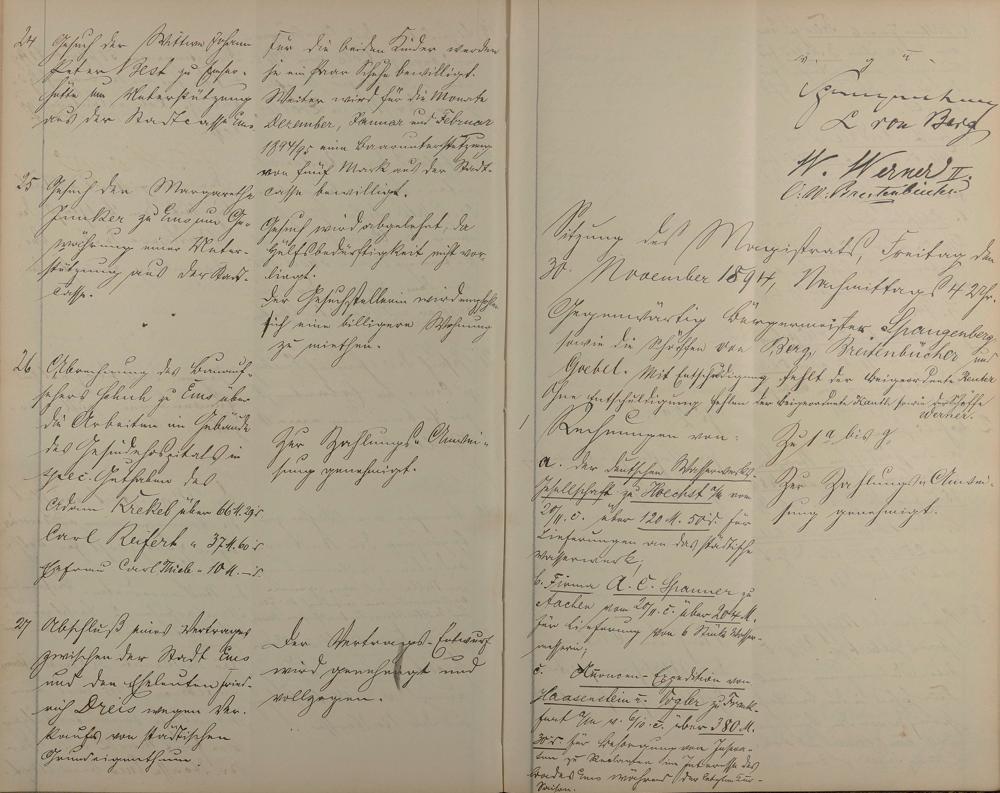 24 Gesuch der Wittwe Johann
Peter Best zu Emser-
hütte um Unterstützung
aus der Stadtcasse Ems
Für die beiden Kinder werden
je ein Paar Schuhe bewilligt.
Weiter wird für die Monate
Dezember, Januar und Februar
1894/95 eine Baarunterstützung
von fünf Mark aus der Stadt-
casse bewilligt.
25 Gesuch der Margarethe
Junker zu Ems um Ge-
währung einer Unter-
stützung aus der Stadt-
casse.
Gesuch wird abgelehnt, da
Hülfsbedürftigkeit nicht vor-
liegt.
Der Gesuchstellerin wird empfohlen
sich eine billigere Wohnung
zu miethen.
26 Abrechnung des Bauauf-
sehers zu Ems über
die Arbeiten im Gebäude
des Gesindehospitals in
specie Guthaben des
Adam Krekel über 66 M. 29 d.
Carl Reifert " 37 M. 60 d.
Ehefrau Carl Thieb " 10 M. – d.
Zur Zahlung u. Anwei-
sung genehmigt.
27 Abschluß eines Vertrages
zwischen der Stadt Ems
und den Eheleuten Fried-
rich Dreis wegen Ver-
kaufs von städtischen
Grundeigenthum.
Der Vertrags-Entwurf
wird genehmigt und
vollzogen.
v. g. u.
Spangenberg
L von Berg
W. Werner II.
C. W. Breitenbücher
Sitzung des Magistrats, Freitag den
30. November 1894, Nachmittags 4 Uhr.
Gegenwärtig Bürgermeister Spangenberg
sowie die Schöffen von Berg, Breitenbücher und
Goebel. Mit Entschuldigung fehlt der Beigeordnete
Ohne Entschuldigung fehlen der Beigeordnete sowie der Schöffe
Werner.
1 Rechnungen von:
a. der deutschen Wasserwerks-
Gesellschaft zu Hoechst a/M vom
20/11. c. über 120 M. 50 d. für
Lieferungen an das städtische
Wasserwerk;
b. Firma A. C. Spanner zu
Aachen vom 20/11. c. über 204 M.
für Lieferung von 6 Stück Wasser-
messern;
c. Annoncen-Expedition von
Haasenstein u. Vogler zu Frank-
furt a/M v. 6/10. c. über 380 M.
30 d. für Besorgung von Insera-
ten zu Reclamen im Interesse des
Bades Ems während der letzten Cur-
Saison.
Zu 1 a bis c,
Zur Zahlung u. Anwei-
sung genehmigt.